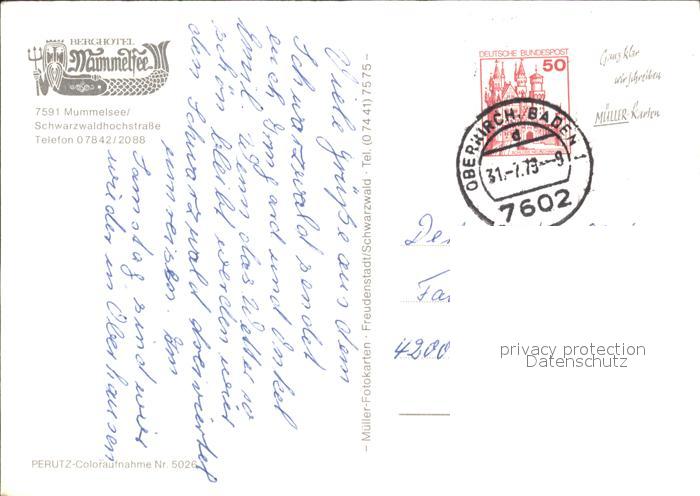 BERGHOTEL
Mummelsee
7591 Mummelsee/
Schwarzwaldhochstraße
Telefon 07842/2088
Viele Grüße aus dem
Schwarzwald sendet
euch Irmgard und Onkel
Emil. Wenn das Wetter so
schön bleibt werden wir
den Schwarzwald
umreisen. Am
Samstag sind wir
wieder in Oberhausen
PERUTZ-Coloraufnahme Nr. 5026
– Müller-Fotokarten · Freudenstadt/Schwarzwald · Tel. (07441) 7575 –
DEUTSCHE BUNDESPOST
50
OBERKIRCH, BADEN 1
d
31.-7.79--9
7602
Ganz klar
wir schreiben
MÜLLER-Karten
Fa
4200
privacy protection
Datenschutz